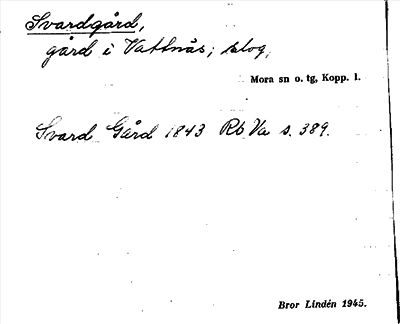 Svardgård,
gård i Vattnäs; slog,
Mora sn o. tg, Kopp. l.
Svard Gård 1843 Rb Va s. 389.
Bror Lindén 1945.